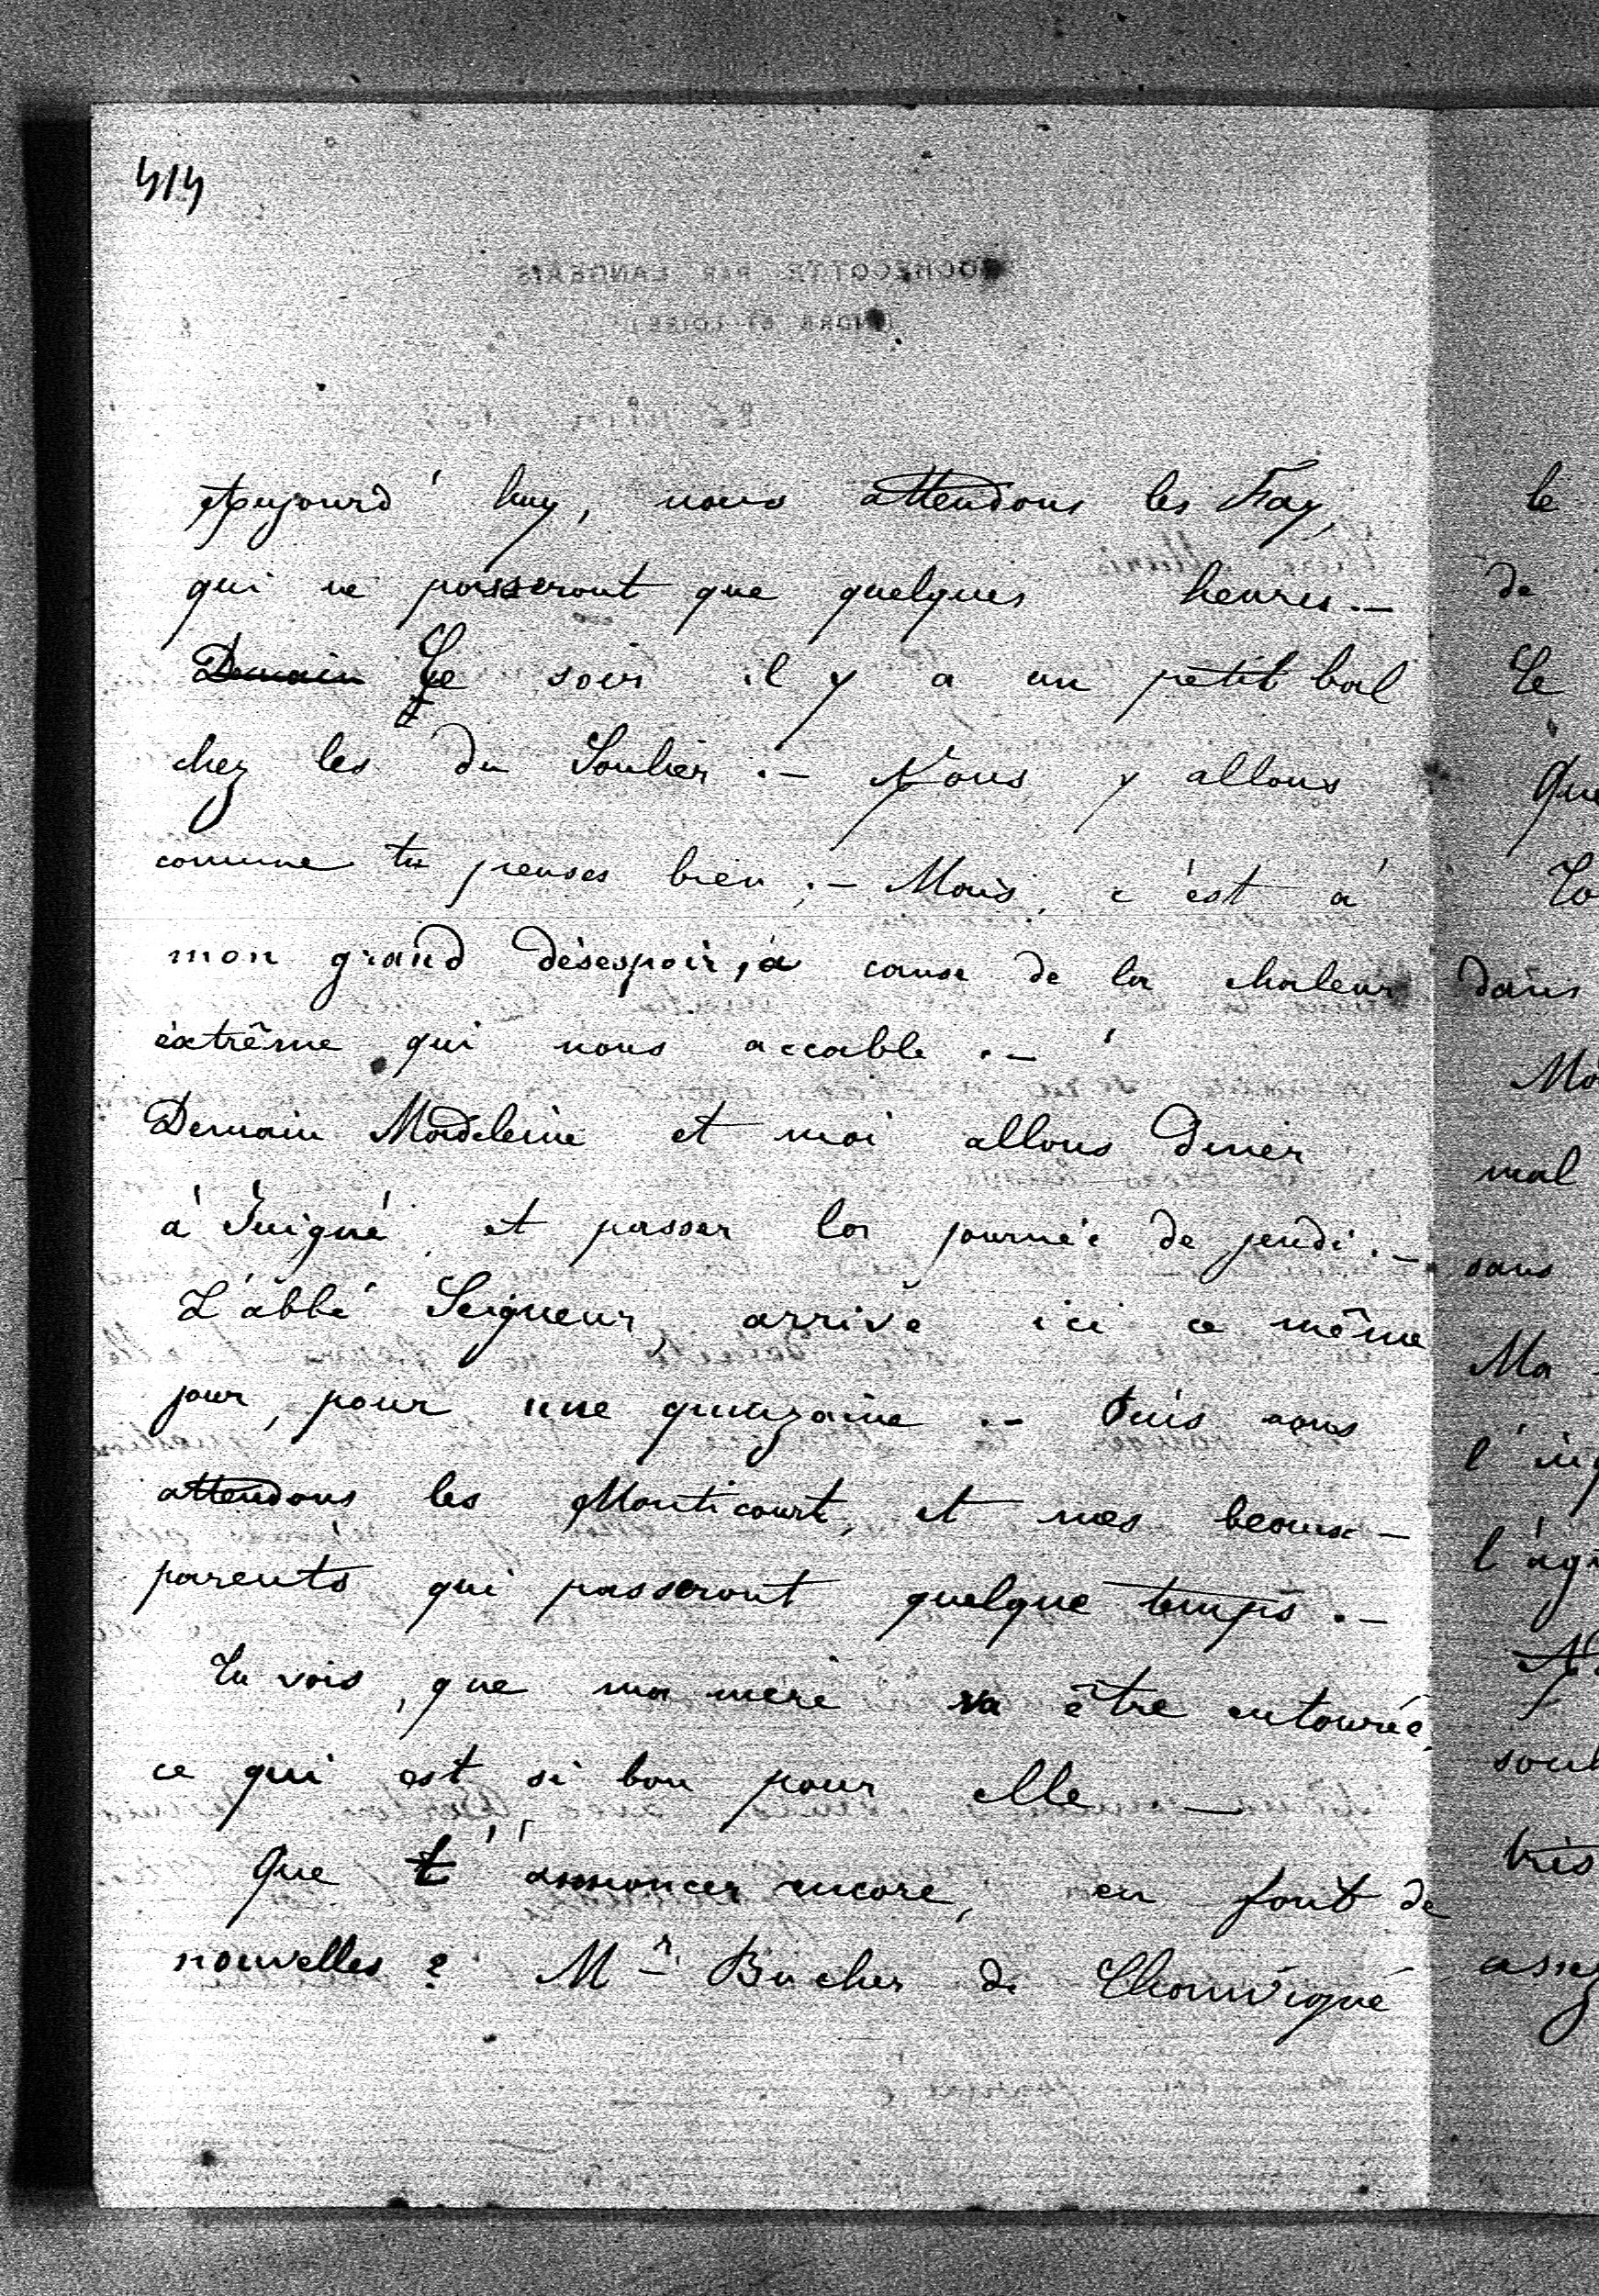 414
Aujourd'huy, nous attendons les Fay,
qui ne passeront que quelques heures. _
Demain Ce soir il y a un petit bal
chez les du Soulier. _ Nous y allons
comme tu penses bien; _ Mais, c'est à
mon grand désespoir, à cause de la chaleur
extrême qui nous accable. _
Demain Madeleine et moi allons diner
à Juigné, et passer la journée de jeudi. _
L'abbé Seigneur, arrive ici ce même
jour, pour une quinzaine. _ Puis nous
attendons les Monticourt, et mes beaux-
parents qui passeront quelque temps. _
Tu vois, que ma mère va être entourée,
ce qui est si bon pour elle _
Que t'annoncer encore, en fait de
nouvelles ? Mr Bucher de Chauvigné